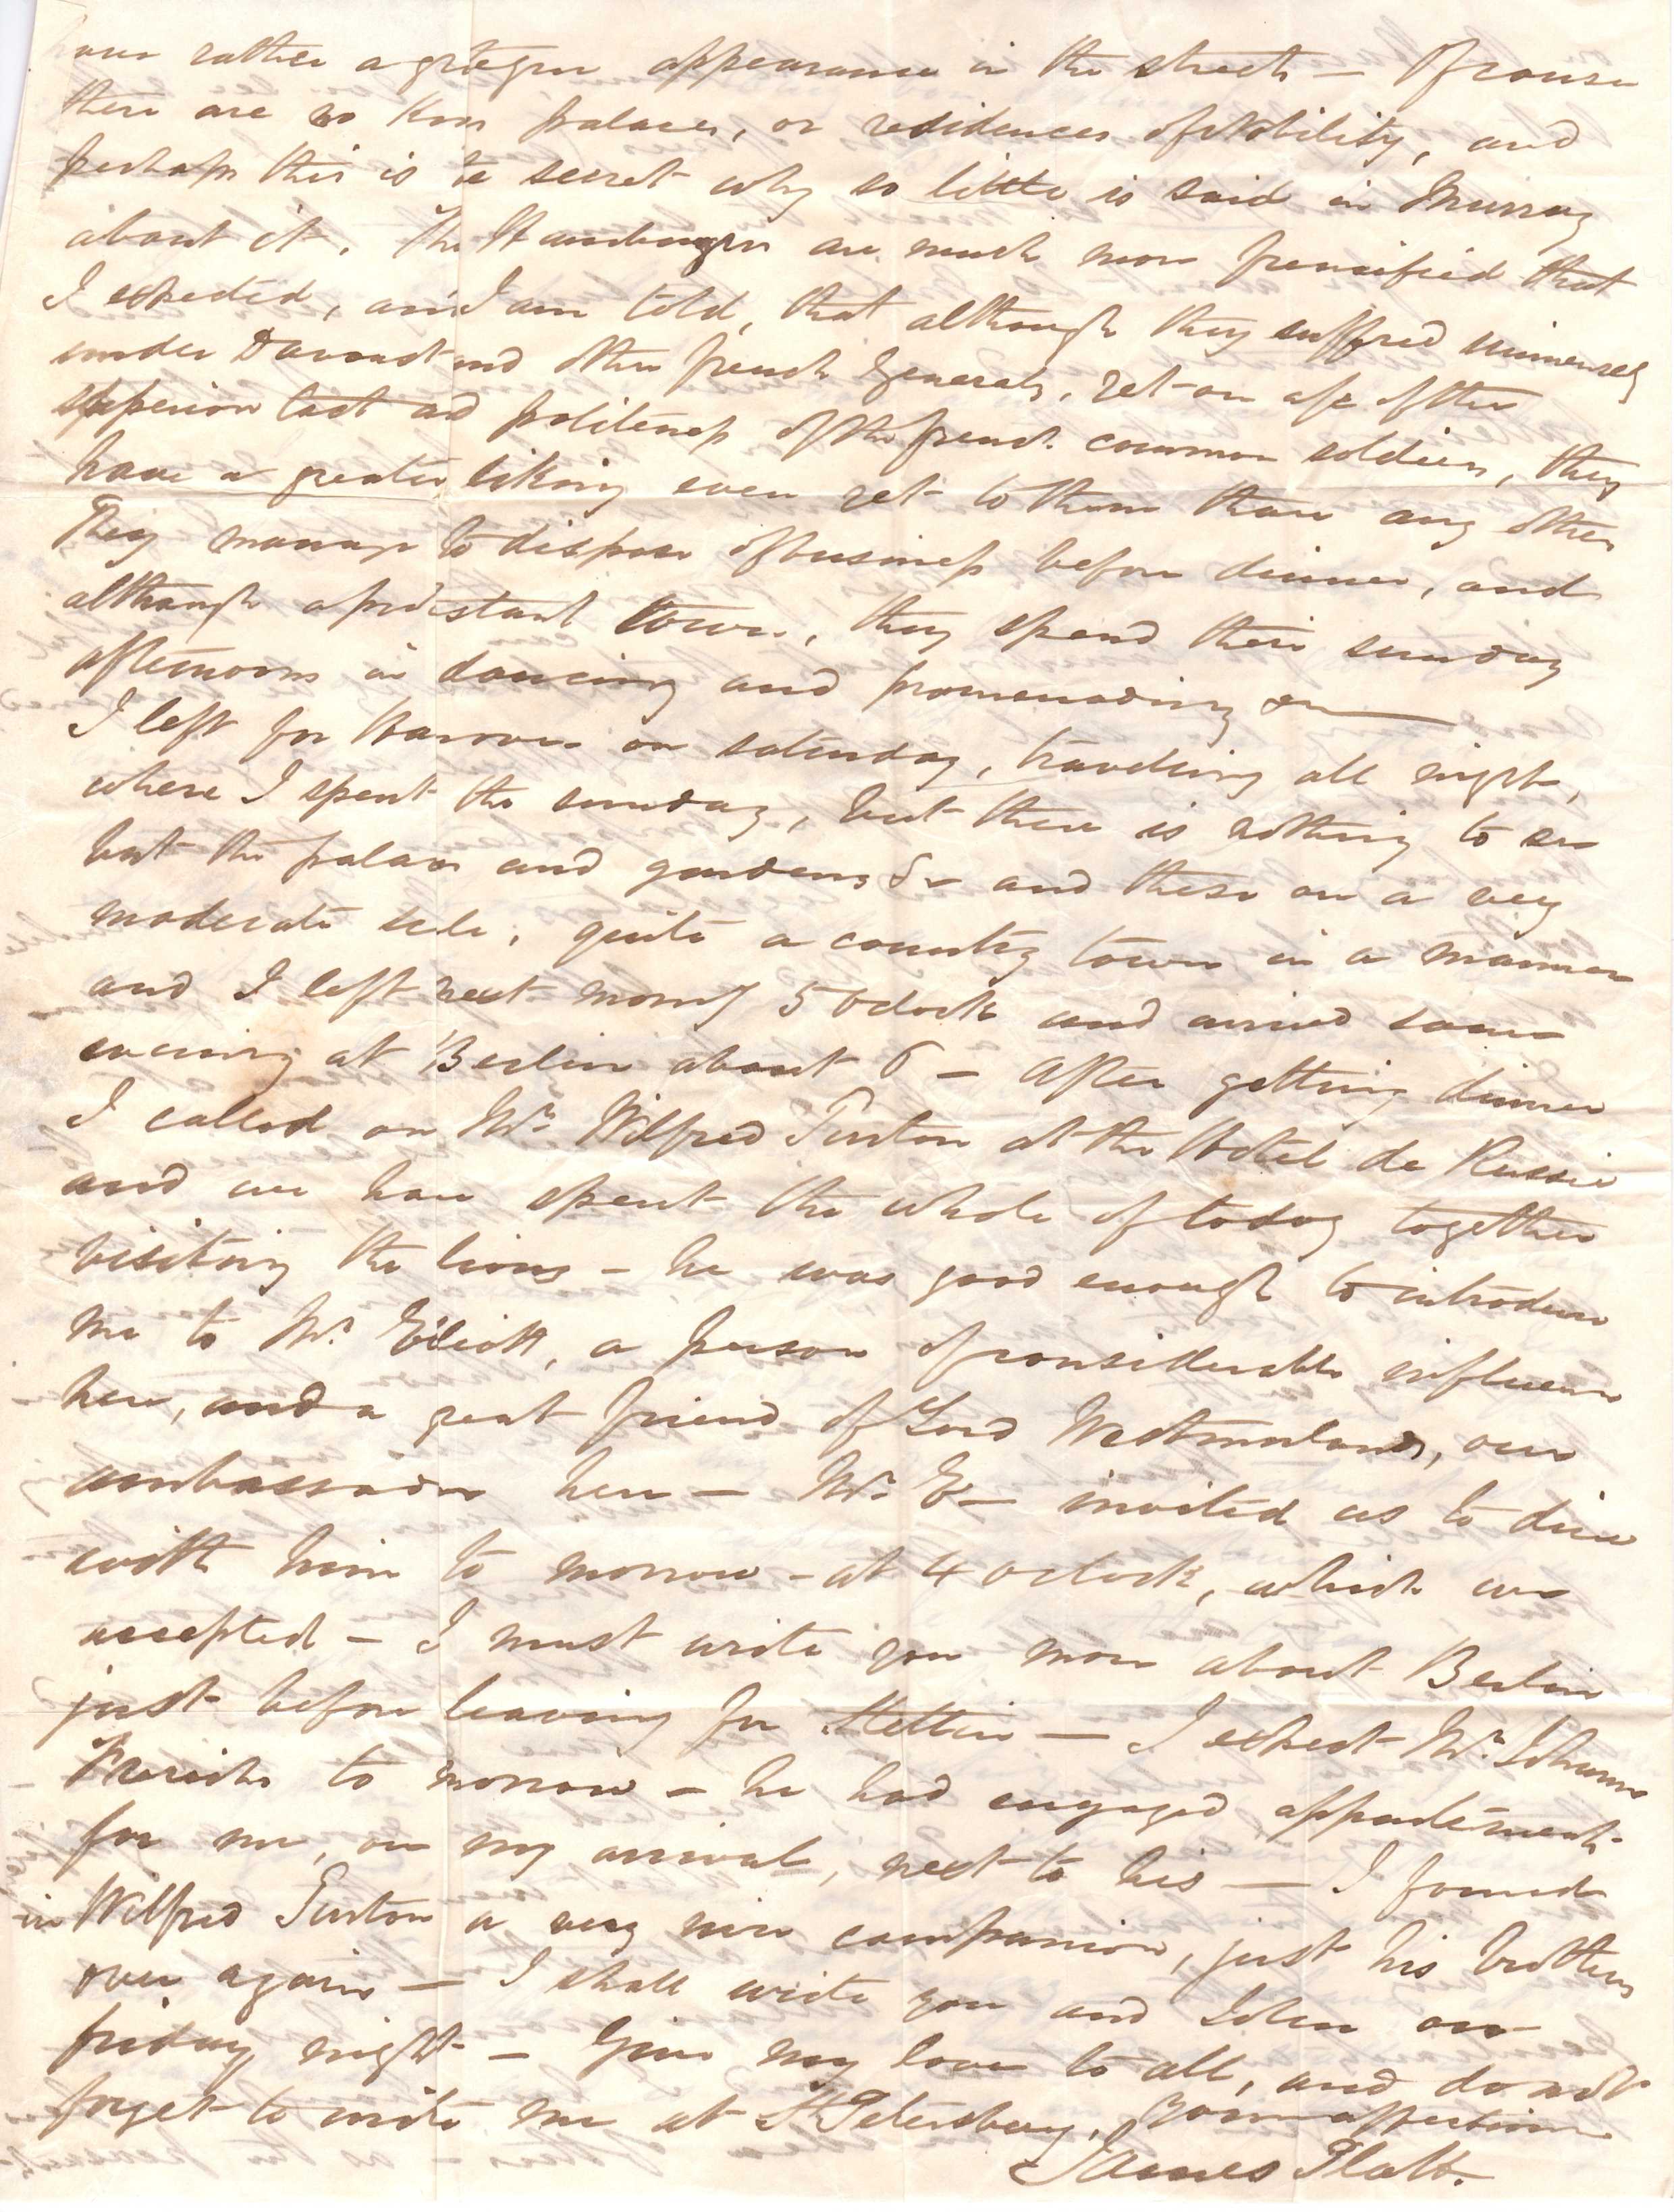 have rather a grotesque appearance in the streets — Of course
there are no Kings palaces, or residences of Nobility, and
perhaps this is te secret why so little is said in Murray
about it. The Hamburgers are much more frenchified that
I expected, and I am told, that although they suffered immensely
under Davoust and other french Generals, yet on a/c of the
superior tact and politeness of the french common soldiers, they
have a greater liking even yet to them than any other
They manage to dispose of business before dinner, and
although a protestant town, they spend their sunday
afternoons in dancing and promenading &c
I left for Hanover on saturday, travelling all night,
where I spent the sunday, but there is nothing to see
but the palace and gardens &c and these on a very
moderate scale, quite a country town in a manner
and I left next morng 5 Oclock and arrived same
evening at Berlin about 6 — After getting dinner
I called on Mr. Wilfred at the Hotel de Russie
and we have spent the whole of today together
visiting the lions — he was good enough to introduce
me to Mr. Elliott, a person of considerable influence
here, and a great friend of Lord Westmorland, our
ambassador here — Mr. E— invited us to dine
with him to morrow — at 4 oclock, which we
accepted — I must write you more about Berlin
just before leaving for Stettin — I expect Mr. Johann
Frerichs to morrow — he had engaged appartements
for me, on my arrival, next to his — I found
in Wilfred a very nice companion, just his brother
over again — I shall write you and John on
friday night — Give my love to all, and do not
forget to write me at St Petersburg. Your affection
James Platt.